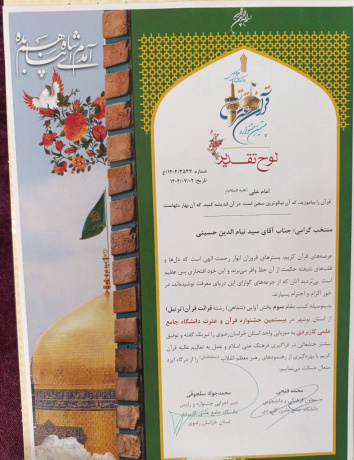 آمدم ای شاه پناهم بده
لوح تقدیر
شماره: ۱۴۰۴/۲۵۳۳/ع
تاریخ: ۱۴۰۴/۰۷/۰۲
امام علی (علیه السلام):
قرآن را بیاموزید، که آن نیکوترین سخن است، در آن اندیشه کنید، که آن بهار دلهاست.
منتخب گرامی: جناب آقای سید نیام الدین حسینی
عرصه‌های قرآن کریم، بسترهای فروزان انوار رحمت الهی است که دل‌ها و
قلب‌های شیفته حکمت از آن حظ وافر می‌برند و این خود افتخاری بس عظیم
است. بی‌تردید آنان که از جرعه‌های گوارای این دریای معرفت نوشیده‌اند، در
خور اکرام و احترام بسیارند.
بدینوسیله کسب مقام سوم بخش آوایی (شفاهی) رشته قرائت قرآن (ترتیل)
از استان بوشهر در بیستمین جشنواره قرآن و عترت دانشگاه جامع
علمی کاربردی به میزبانی واحد استان خراسان‌رضوی را تبریک گفته و توفیق
بیشتر جنابعالی در فراگیری فرهنگ غنی اسلام و عمل به تعالیم عالیه قرآن
کریم با بهره‌گیری از رهنمودهای رهبر معظم انقلاب را از درگاه ایزد
متعال مسألت می‌نماییم.
محمد فتحی
معاون فرهنگی و دانشجویی
دانشگاه جامع علمی کاربردی
محمدجواد سلجوقی
دبیر اجرایی جشنواره و رئیس
دانشگاه جامع علمی کاربردی
استان خراسان رضوی